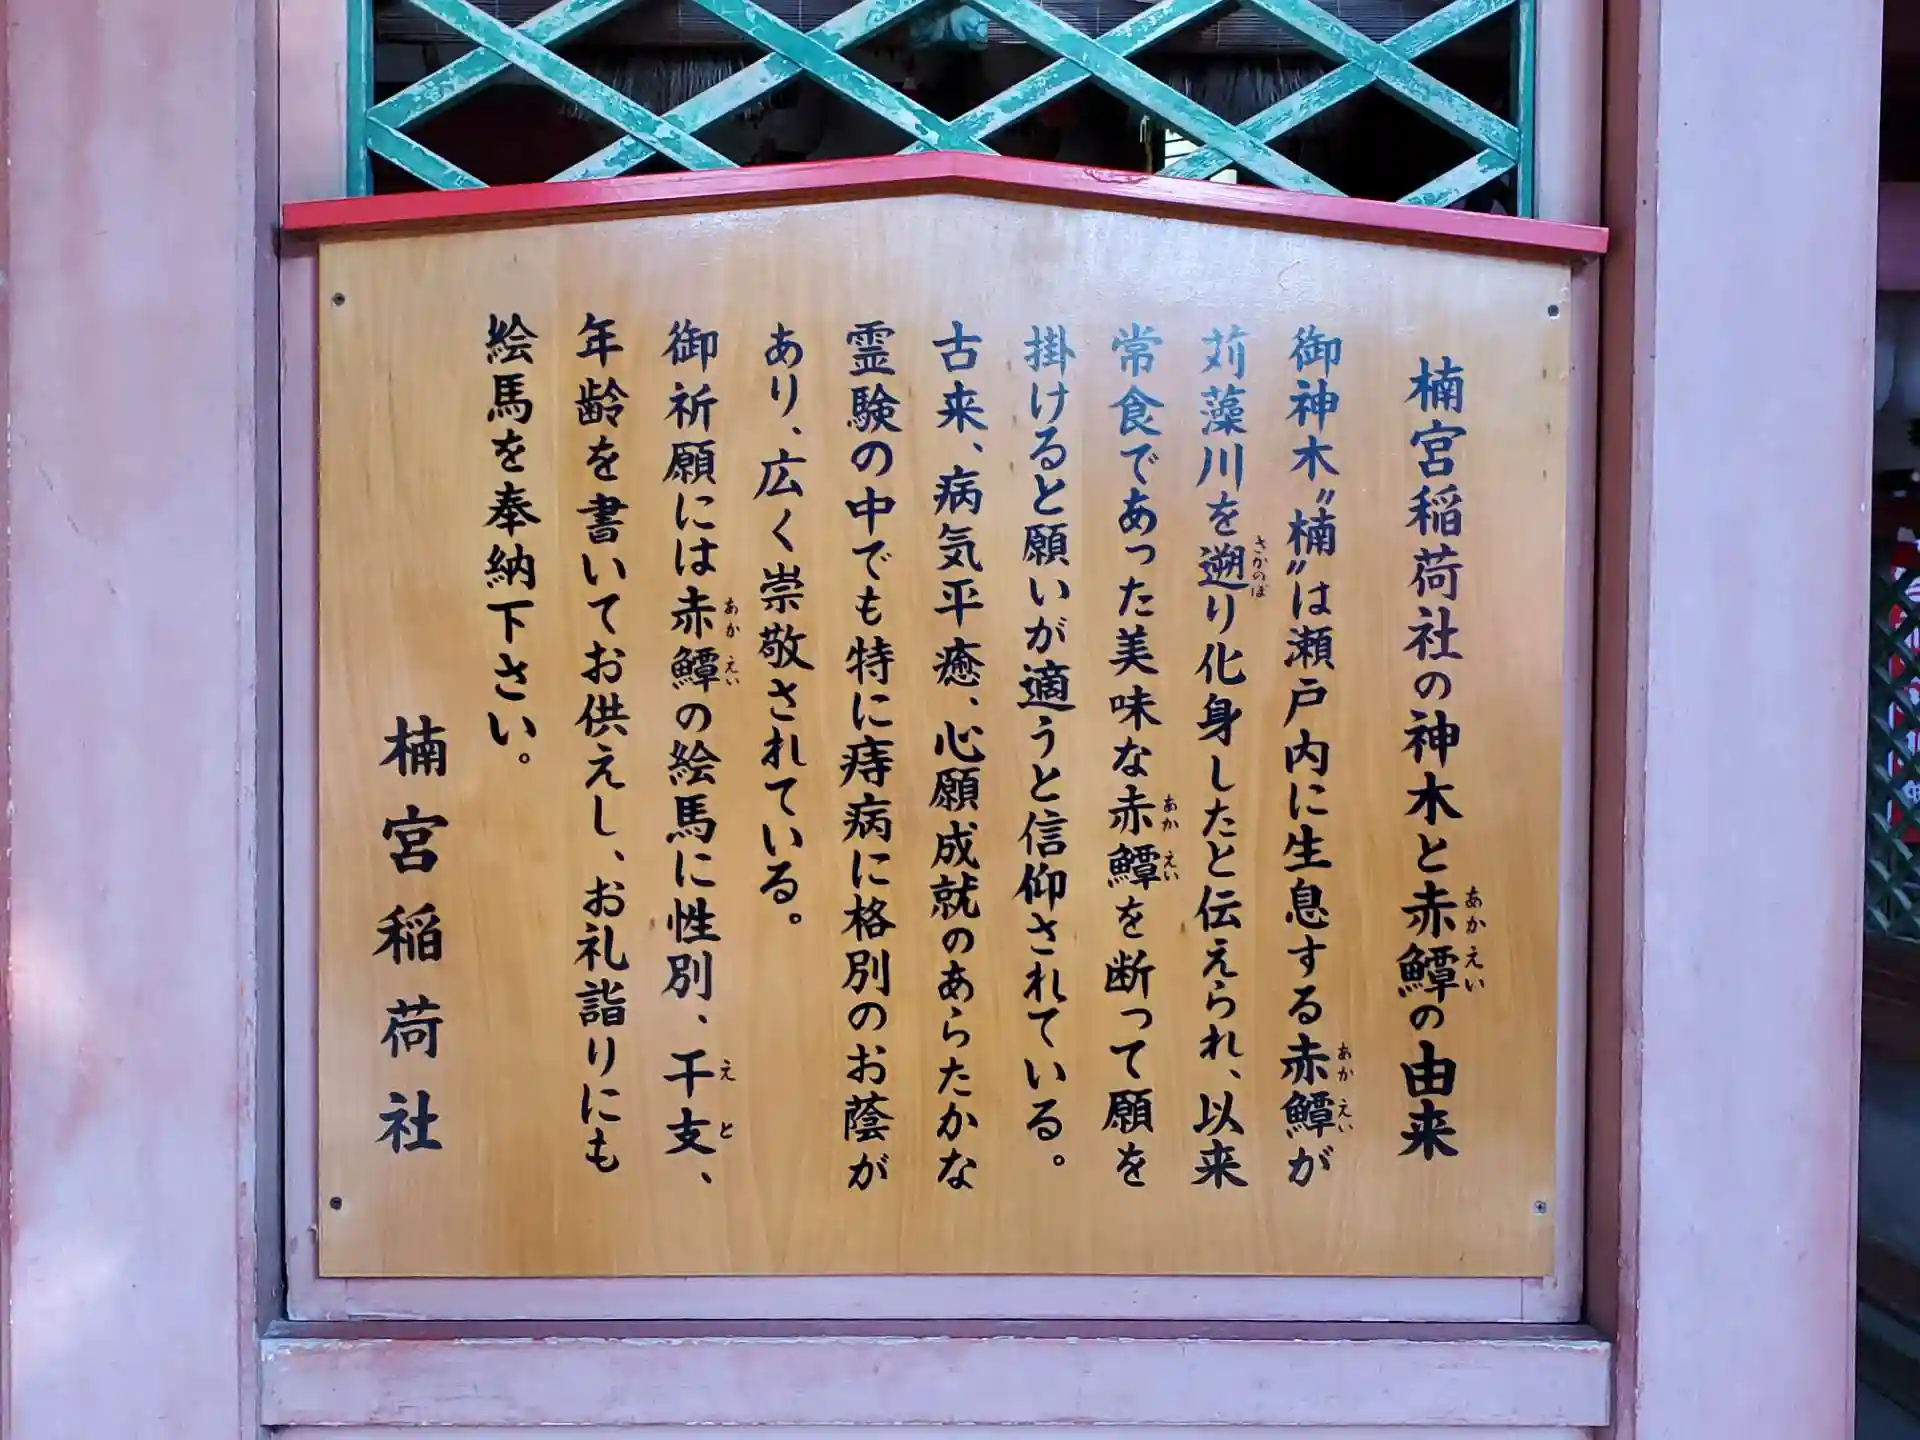 楠宮稲荷社の神木と赤鱏の由来
あかえい
御神木〝楠〟は瀬戸内に生息する赤鱏が
あかえい
苅藻川を遡り化身したと伝えられ、以来
さかのぼ
常食であった美味な赤鱏を断って願を
あかえい
掛けると願いが適うと信仰されている。
古来、病気平癒、心願成就のあらたかな
霊験の中でも特に痔病に格別のお蔭が
あり、広く崇敬されている。
御祈願には赤鱏の絵馬に性別、干支、
あかえい えと
年齢を書いてお供えし、お礼詣りにも
絵馬を奉納下さい。
楠宮稲荷社